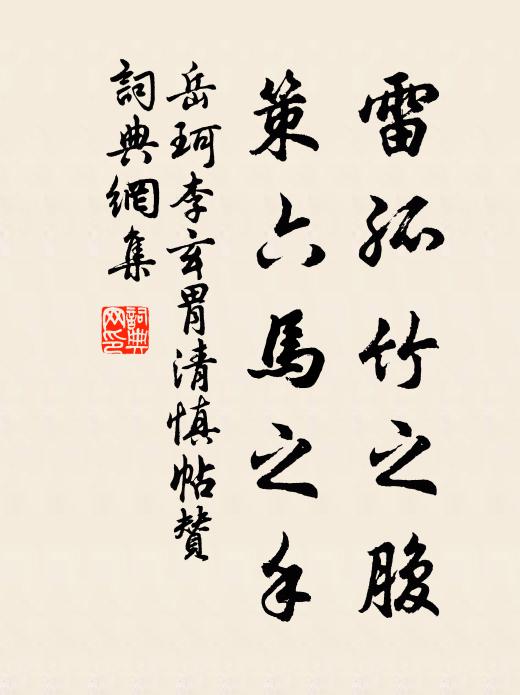 雷孤竹之腹
策六馬之手
岳珂李玄胃清慎帖贊
詞典網集
詞典网印